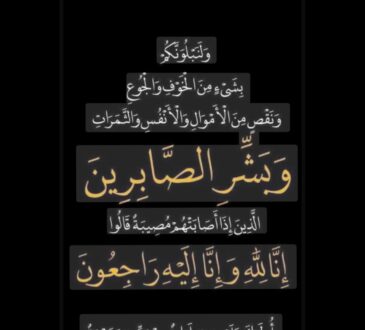 وَلَنَبْلُوَنَّكُمْ
بِشَيْءٍ مِنَ الْخَوْفِ وَالْجُوعِ
وَنَقْصٍ مِنَ الْأَمْوَالِ وَالْأَنْفُسِ وَالثَّمَرَاتِ
وَبَشِّرِ الصَّابِرِينَ
الَّذِينَ إِذَا أَصَابَتْهُمْ مُصِيبَةٌ قَالُوا
إِنَّا لِلَّهِ وَإِنَّا إِلَيْهِ رَاجِعُونَ